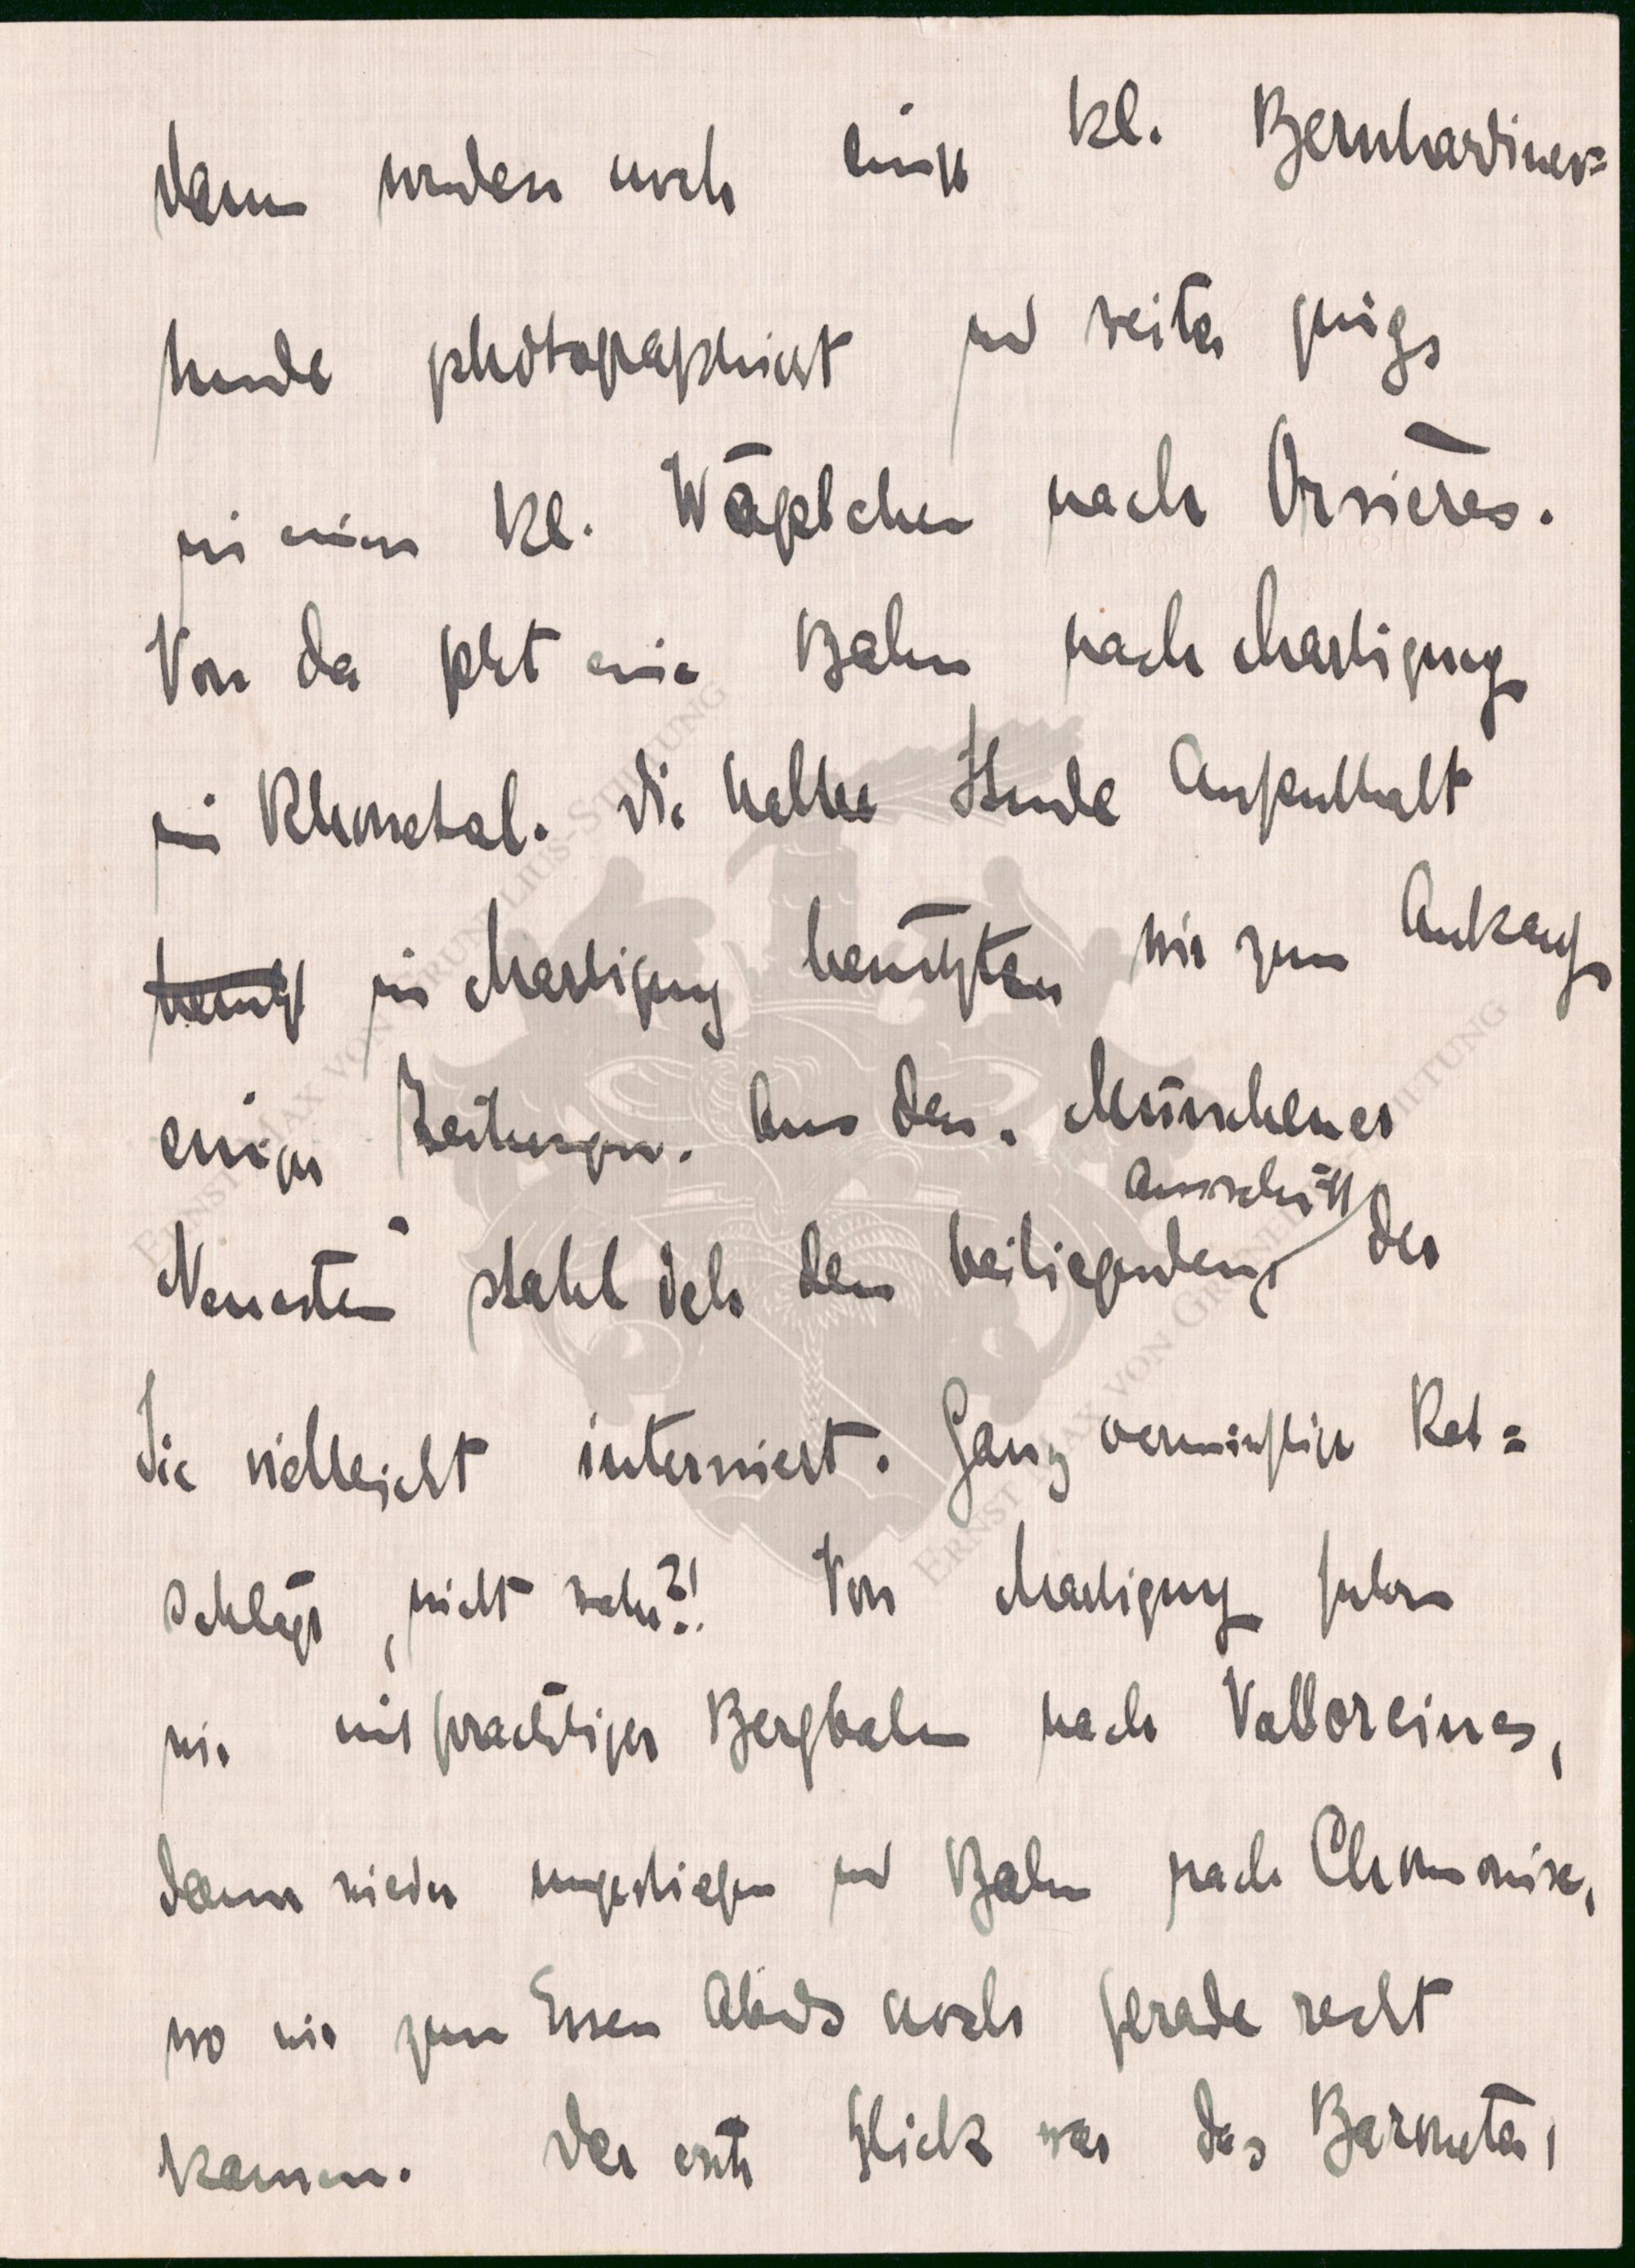 dann wurden noch einige kl. Bernhardiner=
hunde photographiert und weiter gings
in einem kl. Wägelchen nach Orsières.
Von da geht eine Bahn nach Martigny
im Rhonetal. Die halbe Stunde Aufenthalt
benutzt in Martigny benützten wir zum Ankauf
einiger Zeitungen. Aus den „Münchener
Ausschnitt
Neuesten" stahl ich den beiliegenden, der
Sie vielleicht interessiert. Ganz vernünftige Rat=
schläge, nicht wahr?! Von Martigny fuhren
wir mit prächtiger Bergbahn nach Vallorcines,
dann wieder umgestiegen und Bahn nach Chamonix,
wo wir zum Essen Abends noch gerade recht
kamen. Der erste Blick war das Barometer,
ERNST MAX VON GRUNELIUS-STIFTUNG
ERNST MAX VON GRUNELIUS-STIFTUNG